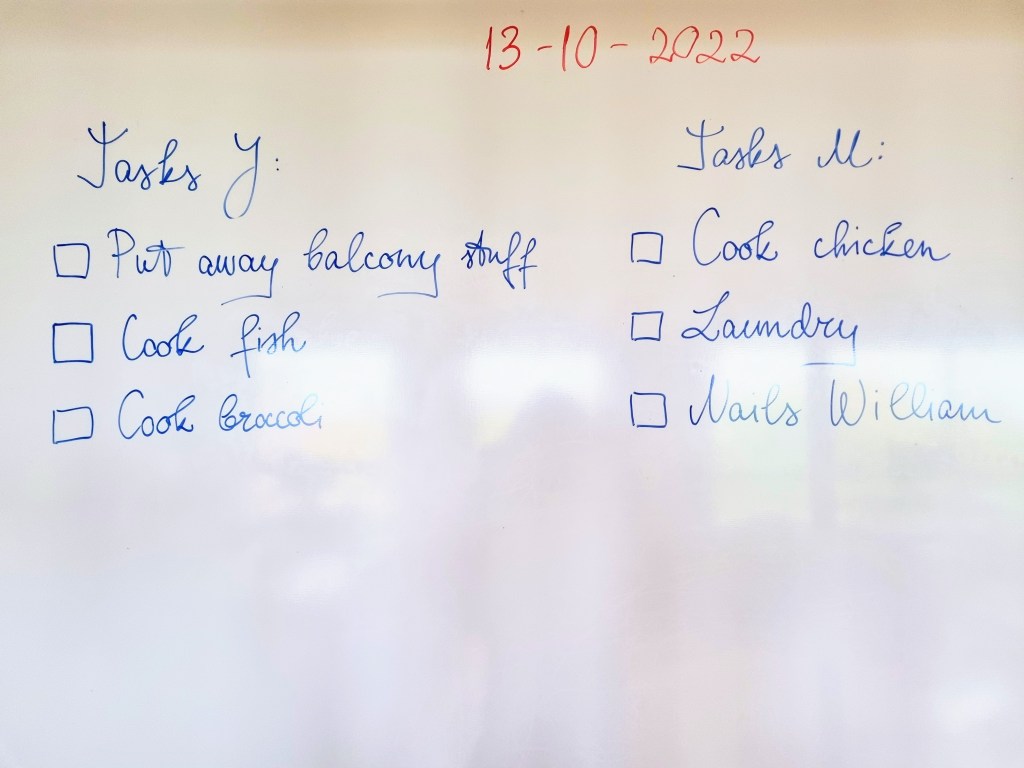 13-10-2022
Tasks J:
Put away balcony stuff
Cook fish
Cook broccoli
Tasks M:
Cook chicken
Laundry
Nails William